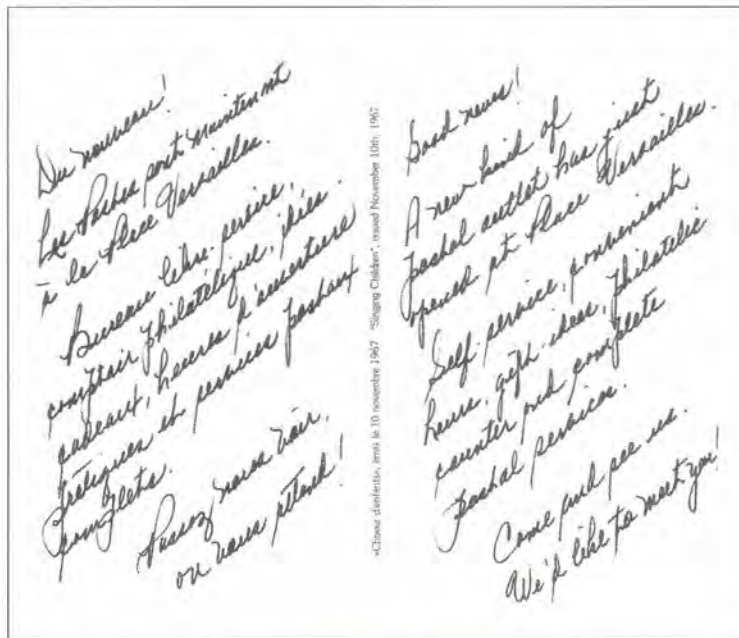 Du nouveau!
Les Postes sont maintenant
à la Place Versailles.
Bureau libre-service,
comptoir philatélique, idées
cadeaux, heures d'ouverture
pratiques et services postaux
complets.
Passez nous voir,
on vous attend!
«Chorale d'enfants», émis le 10 novembre 1967 "Singing Children", issued November 10th, 1967
Good news!
A new kind of
postal outlet has just
opened at Place Versailles.
Self-service, convenient
hours, gift ideas, philatelic
counter and complete
postal services.
Come and see us.
We'd like to meet you!